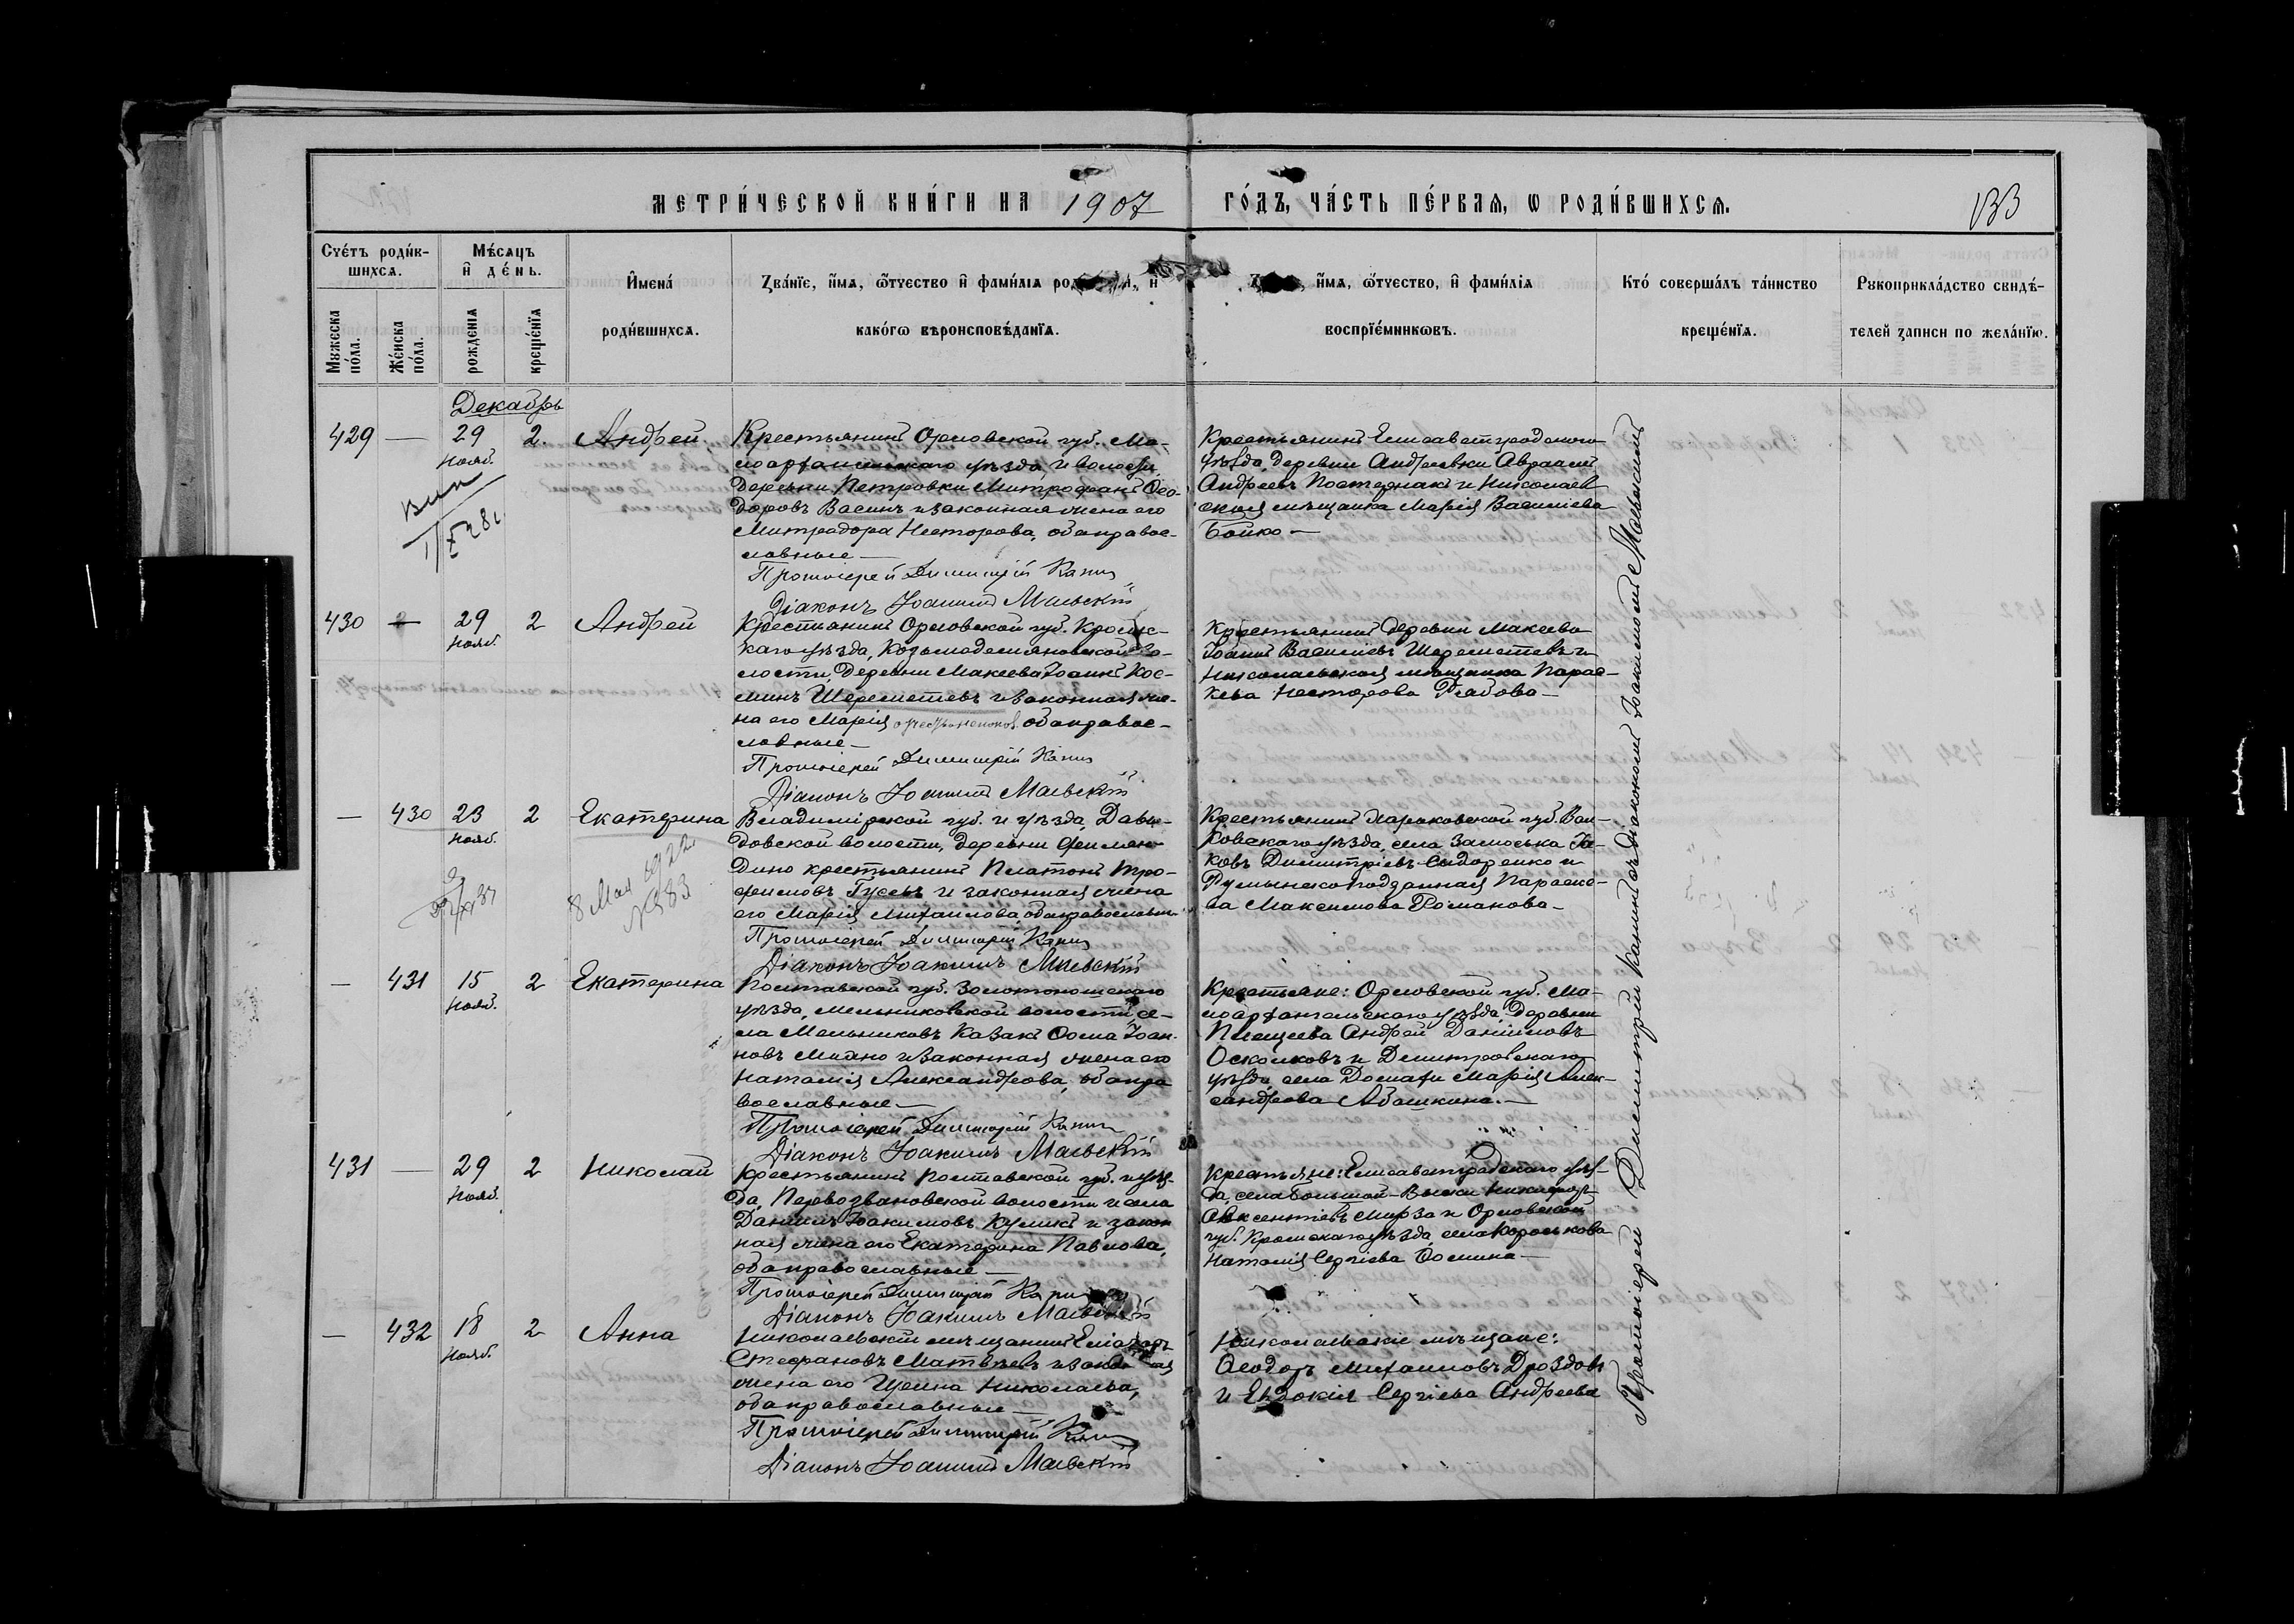 МЕТРИ́ЧЕСКОЙ КНИ́ГИ НА 1907 ГО́ДЪ, ЧА́СТЬ ПЕ́РВАЯ, Ѡ РОДИ́ВШИХСЯ.
133
Сче́тъ роди́в-
шихся.
Мѣ́сяцъ
и̑ де́нь.
Мꙋжеска по́ла.
Же́нска по́ла.
рожденїѧ
креще́нїѧ
И҆мена́
роди́вшихся.
Зва́нїе, и҆́мя, ѻ҆́тчество и҆ фами́лїя род
како́гѡ вѣроисповѣ́данїя.
и҆́мя, ѻ҆́тчество, и҆ фами́лїя
воспрїе́мниковъ.
Кто́ соверша́лъ та́инство
креще́нїя.
Рꙋкоприкла́дство свидѣ́-
телей записи по жела́нїю.
Декабрь
429 — 29 Нояб. 2. Андрей
Крестьянинъ Орловской губ. Ма-
лоархангельскаго уѣзда и волости,
деревни Петровки Митрофанъ Ѳео-
доровъ Васинъ и законная жена его
Митродора Несторова, оба право-
славные —
Протоіерей Димитрій
Діаконъ Іоакимъ Маевскій
Крестьянинъ Елисаветградскаго
уѣзда, деревни Андреевки Авраамъ
Андреевъ Постернакъ и Николаев
ская мѣщанка Марія Василіева
Бойко —
430 — 29 Нояб. 2 Андрей
Крестьянинъ Орловской губ. Кромс-
каго уѣзда, Козьмодемьяновской во-
лости, деревни Макеева Іоаннъ Кос-
минъ Шереметевъ и законная же-
на его Марія оба право-
славные —
Протоіерей Димитрій
Діаконъ Іоакимъ Маевскій
Крестьянинъ деревни Макеева
Іоаннъ Василіевъ Шереметевъ и
Николаевская мѣщанка Парас-
кева Несторова Рябова —
— 430 23 Нояб. 2 Екатерина
8 Мая 1922
№ 83
Владимірской губ. и уѣзда, Давы-
довской волости, деревни
дино крестьянинъ Платонъ Тро-
фимовъ Гусевъ и законная жена
его Марія Михаилова, оба православн.
Протоіерей Димитрій
Діаконъ Іоакимъ Маевскій
Крестьянинъ Харьковской губ. Вал-
ковскаго уѣзда, села Замоська Іа-
ковъ Димитріевъ Сидоренко и
Румынско подданная Параске-
ва Максимова Романова —
— 431 15 Нояб. 2 Екатерина
Полтавской губ. Золотоношскаго
уѣзда, Мельниковской волости, се-
ла Мельниковъ Казакъ Ѳома Іоан-
новъ и законная жена его
Наталія Александрова, оба пра
вославные —
Протоіерей Димитрій
Діаконъ Іоакимъ Маевскій
Крестьяне: Орловской губ. Ма-
лоархангельскаго уѣзда, деревни
Плещеева Андрей Даніиловъ
Осколковъ и Дмитровскаго
уѣзда, села Домахи Марія Алек-
сандрова Абашкина. —
431 — 29 Нояб. 2 Николай
Крестьянинъ Полтавской губ. и уѣз-
да, Первозвановской волости и села
Даніилъ Іоакимовъ Куликъ и закон
ная жена его Екатерина Павлова,
оба православные —
Протоіерей Димитрій
Діаконъ Іоакимъ Маевскій
Крестьяне: Елисаветградскаго уѣз-
да, села Большой-Выски Никифоръ
Авксентіевъ Мирза и Орловской
губ. Кромскаго уѣзда, села Короськова
Наталія Сергіева Ѳомина —
— 432 18 Нояб. 2 Анна
Николаевскій мѣщанинъ
Стефановъ Матвѣевъ и законная
жена его Ирина Николаева,
оба православные —
Протоіерей Димитрій
Діаконъ Іоакимъ Маевскій
Николаевскіе мѣщане:
Ѳеодоръ Михаиловъ Дроздовъ
и Евдокія Сергіева Андреева
Протоіерей Димитрій съ діакономъ Іоакимомъ Маевскимъ